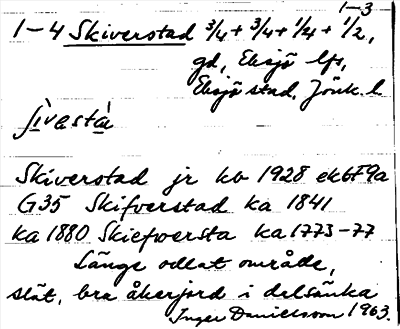 1-3
1-4 Skiverstad 3/4 + 3/4 + 1/4 + 1/2,
gd, Eksjö lfs,
Eksjö stad, Jönk. l
Skiverstad jr kb 1928 ek 6F9a
G35 Skifverstad ka 1841
ka 1880 Skiefwersta ka 1773-77
Långs odlat område,
slät, bra åkerjord i dalsänka
Inger Danielsson 1963.